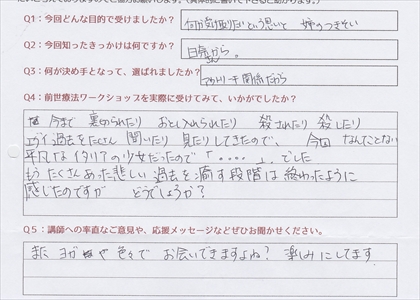 Q1：今回どんな目的で受けましたか？
何か気取りたいという思いと 姉のつきそい
Q2：今回知ったきっかけは何ですか？
日気から。
Q3：何が決め手となって、選ばれましたか？
関係だから
Q4：前世療法ワークショップを実際に受けてみて、いかがでしたか？
今まで 裏切られたり おとし入れられたり 殺されたり 殺したり
エグイ過去をたくさん 聞いたり 見たりしてきたので、 今回 なんてことない
平凡なイタリアの少女だったので「・・・・」。でした
もうたくさんあった悲しい過去を癒す段階は終わったように
感じたのですが どうでしょうか？
Q5：講師への率直なご意見や、応援メッセージなどぜひお聞かせください。
また ヨガや色々で お会いできますよね？ 楽しみにしてます。